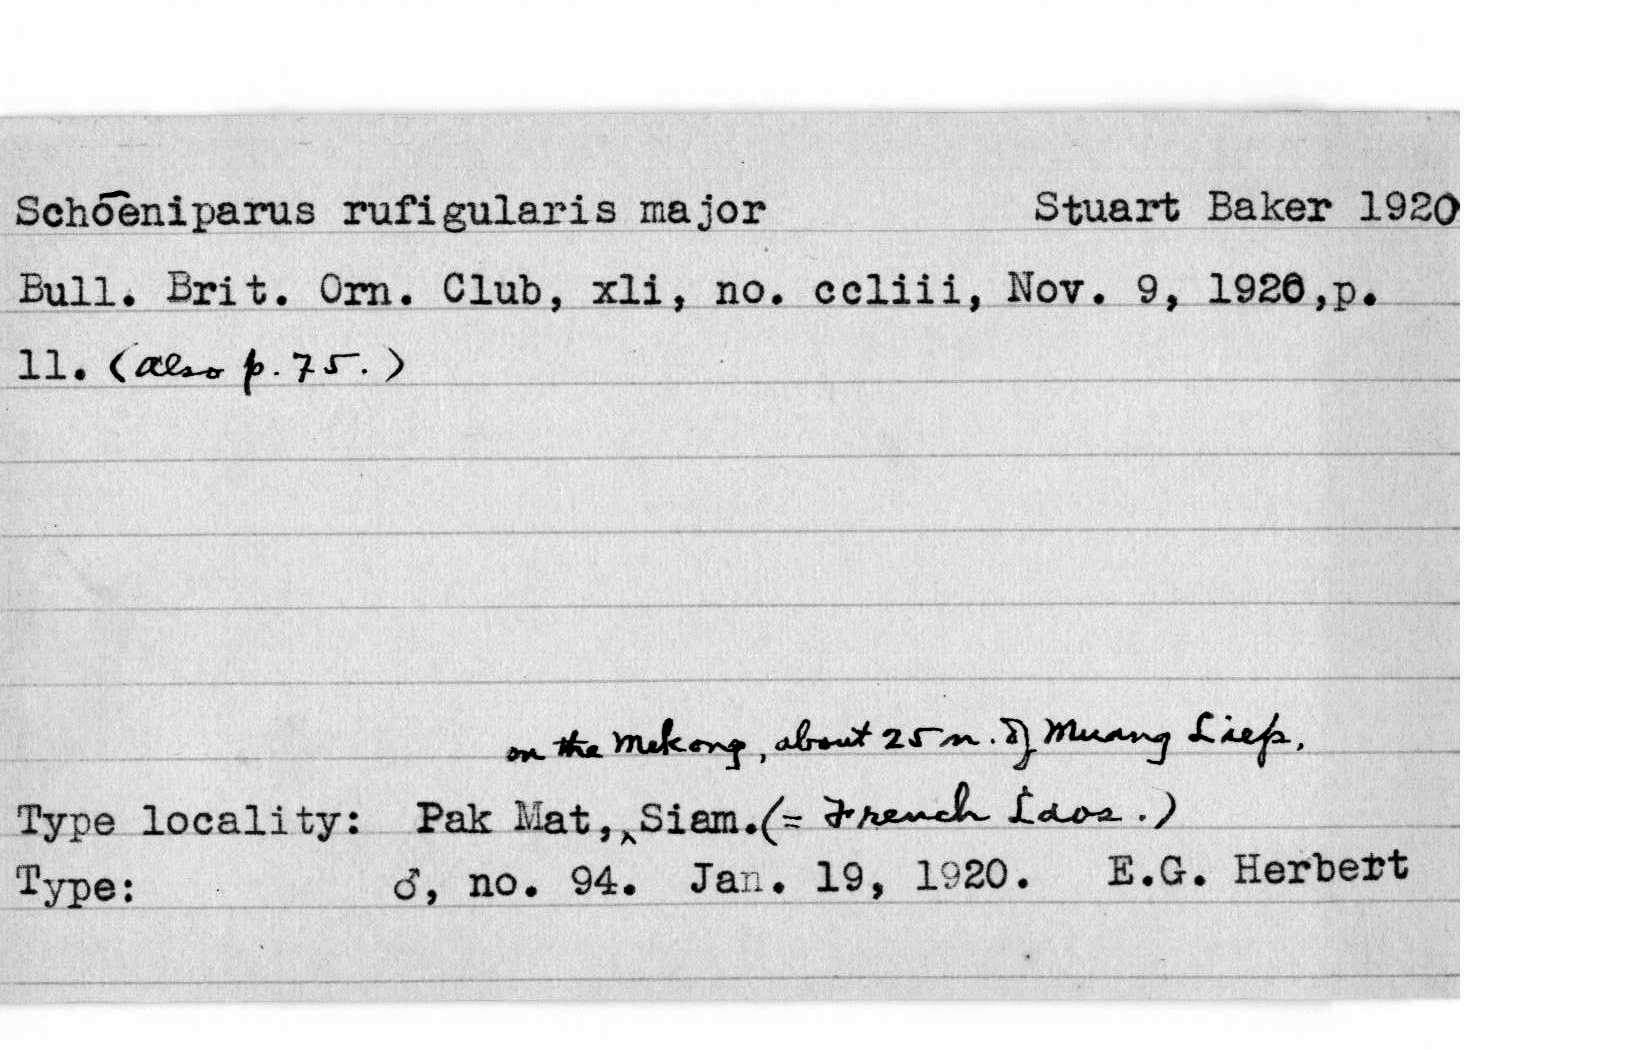 Schoeniparus rufigularis major Stuart Baker 1920
Bull. Brit. Orn. Club, xli, no. ccliii, Nov. 9, 1920,p.
11. (also p. 75.)
on the Mekong, about 25 m. of Muang Liep,
Type locality: Pak Mat,‸Siam.(= French Laos.)
Type: ♂, no. 94. Jan. 19, 1920. E.G. Herbert